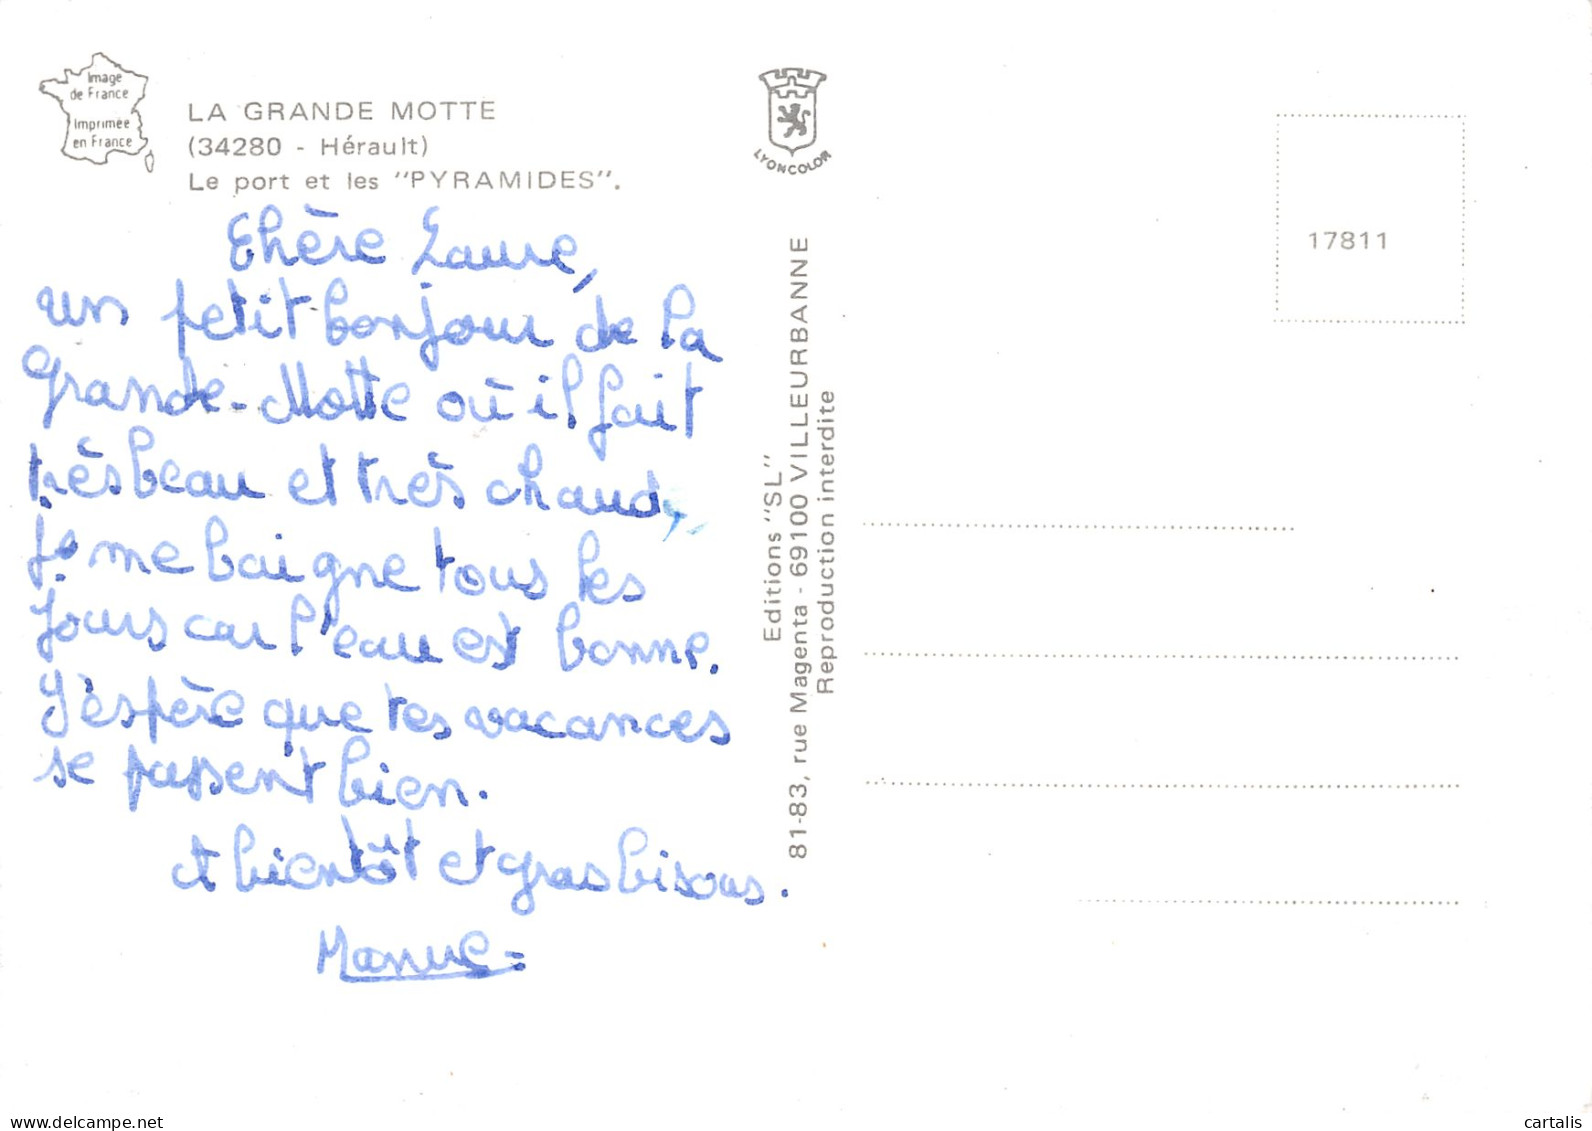 Image
de France
Imprimée
en France
LA GRANDE MOTTE
(34280 - Hérault)
Le port et les "PYRAMIDES".
LYONCOLOR
17811
Editions "SL"
81-83, rue Magenta - 69100 VILLEURBANNE
Reproduction interdite
Chère Laure,
un petit bonjour de la
Grande-Motte où il fait
très beau et très chaud,
je me baigne tous les
jours car l'eau est bonne.
J'éspère que tes vacances
se passent bien.
A bientôt et gros bisous.
delcampe.net
cartalis